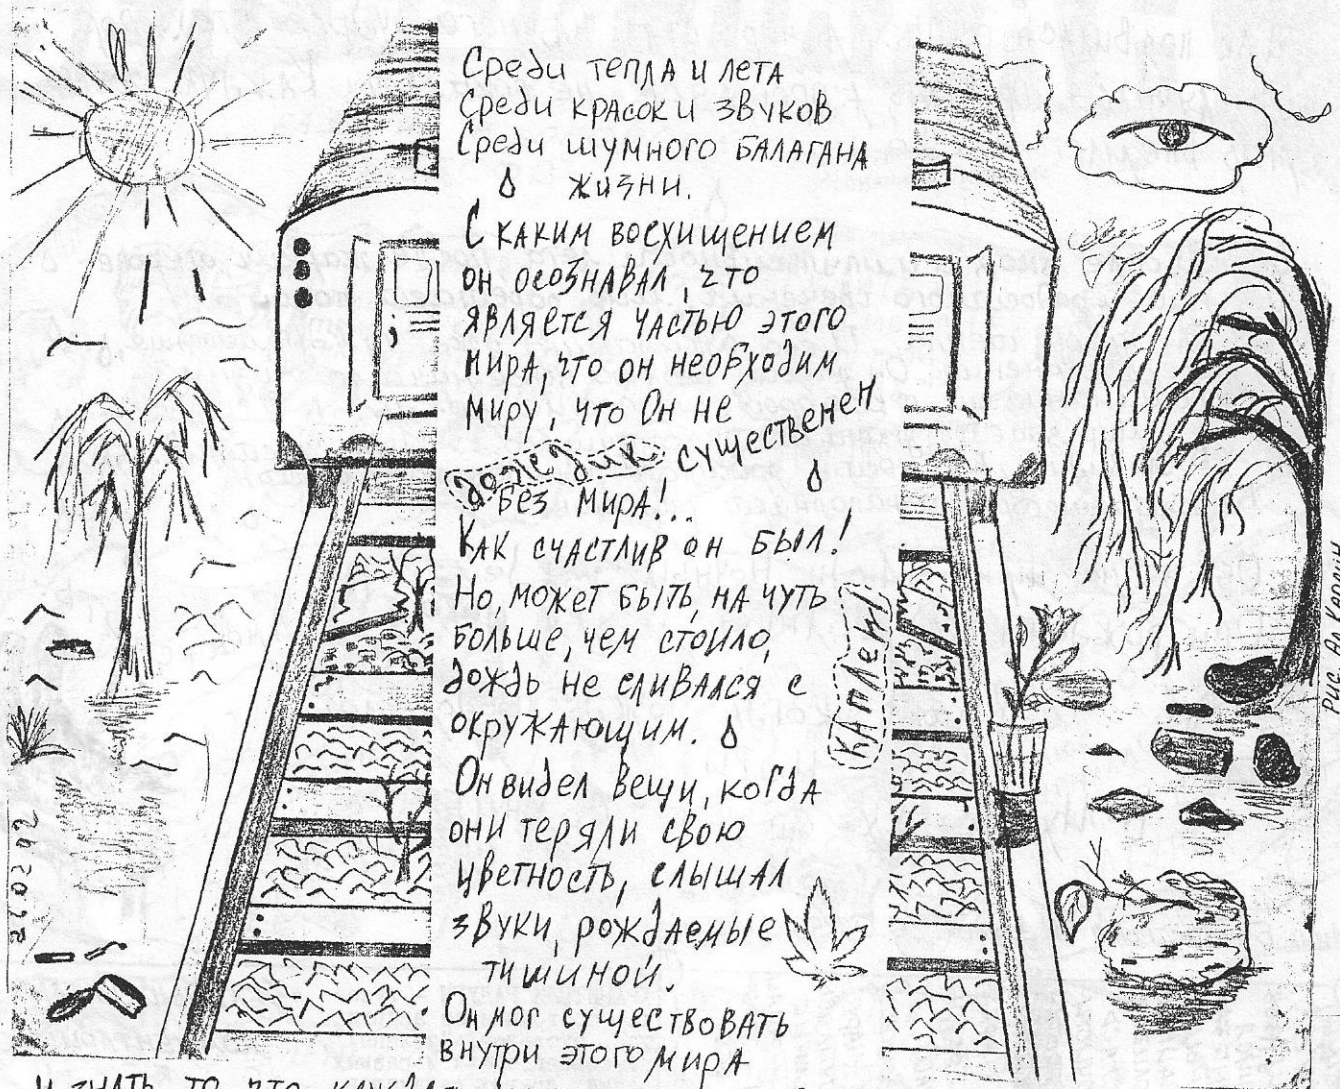 Среди тепла и лета
Среди красок и звуков
Среди шумного балагана
жизни.
С каким восхищением
он осознавал, что
является частью этого
мира, что он необходим
миру, что Он не
существенен
дождик
без мира!..
Как счастлив он был!
Но, может быть, на чуть
больше, чем стоило,
дождь не сливался с
окружающим.
каплен
Он видел вещи, когда
они теряли свою
цветность, слышал
звуки, рождаемые
тишиной.
Он мог существовать
внутри этого мира
и знать то, что